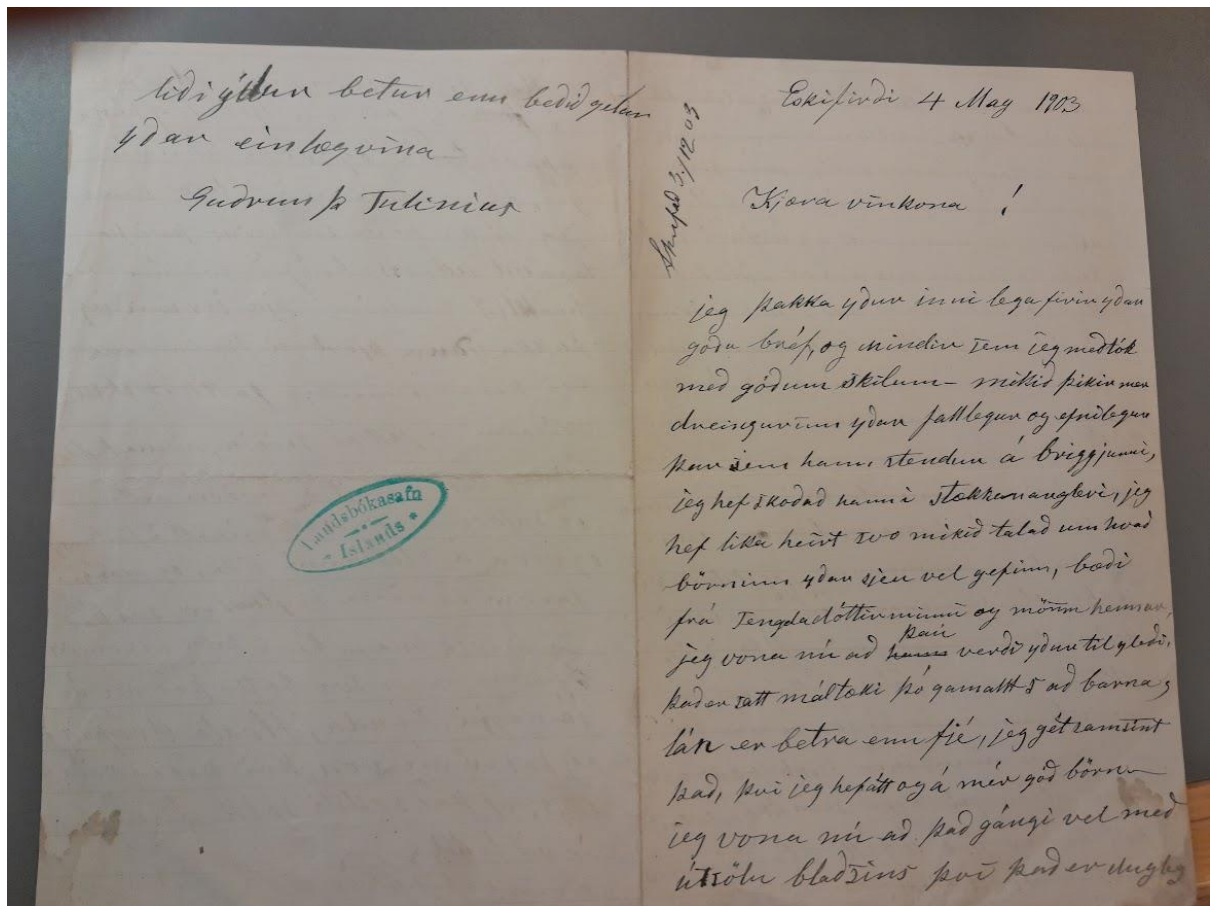 líði yður betur enn beðið getur
yðar einlæg vina
Guðrun þ Tulinius
Landsbókasafn
Íslands
Eskifirði 4 May 1903
Skrifað 3/12 03
Kjæra vinkona !
jeg þakka yður inni lega firir yðar
góða bréf, og mindir sem jeg meðtók
með góðum skilum - mikið þikir mer
dreingurinn yðar fallegur og efnilegur
þar sem hann stendur á briggjunni,
jeg hef skoðað hann i stækkunargleri, jeg
hef lika heirt svo mikið talað um hvað
börninn yðar sjeu vel gefinn, bæði
frá Tengdadóttir minni og mönnu hennar,
jeg vona nú að þau verði yður til gleði,
það er satt máltæki þó gamallt s að barna
lán er betra enn fjé, jeg gét samsint
það, þvi jeg hef átt og á mér góð börn
jeg vona nú að það gángi vel með
útsölu blaðsins þvi það er dugleg